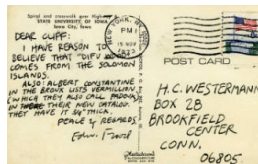 Spiral and crosswalk over Highway
STATE UNIVERSITY OF IOWA
Iowa City, Iowa
DEAR CLIFF:
I HAVE REASON TO
BELIEVE THAT "DIFU
COMES FROM THE SOLOMON
ISLANDS.
ALSO: ALBERT CONSTANTINE
IN THE BRONX LISTS VERMILLION,
(WHICH THEY ALSO CALL PADOUK)
IN THEIR NEW CATALOG.
THEY HAVE IT 3/4" THICK.
PEACE & REGARDS,
NEW YORK, N.Y.
PM
15 NOV
POST CARD
H.C. WESTERMANN
BOX 28
BROOKFIELD
CENTER
CONN.
06805